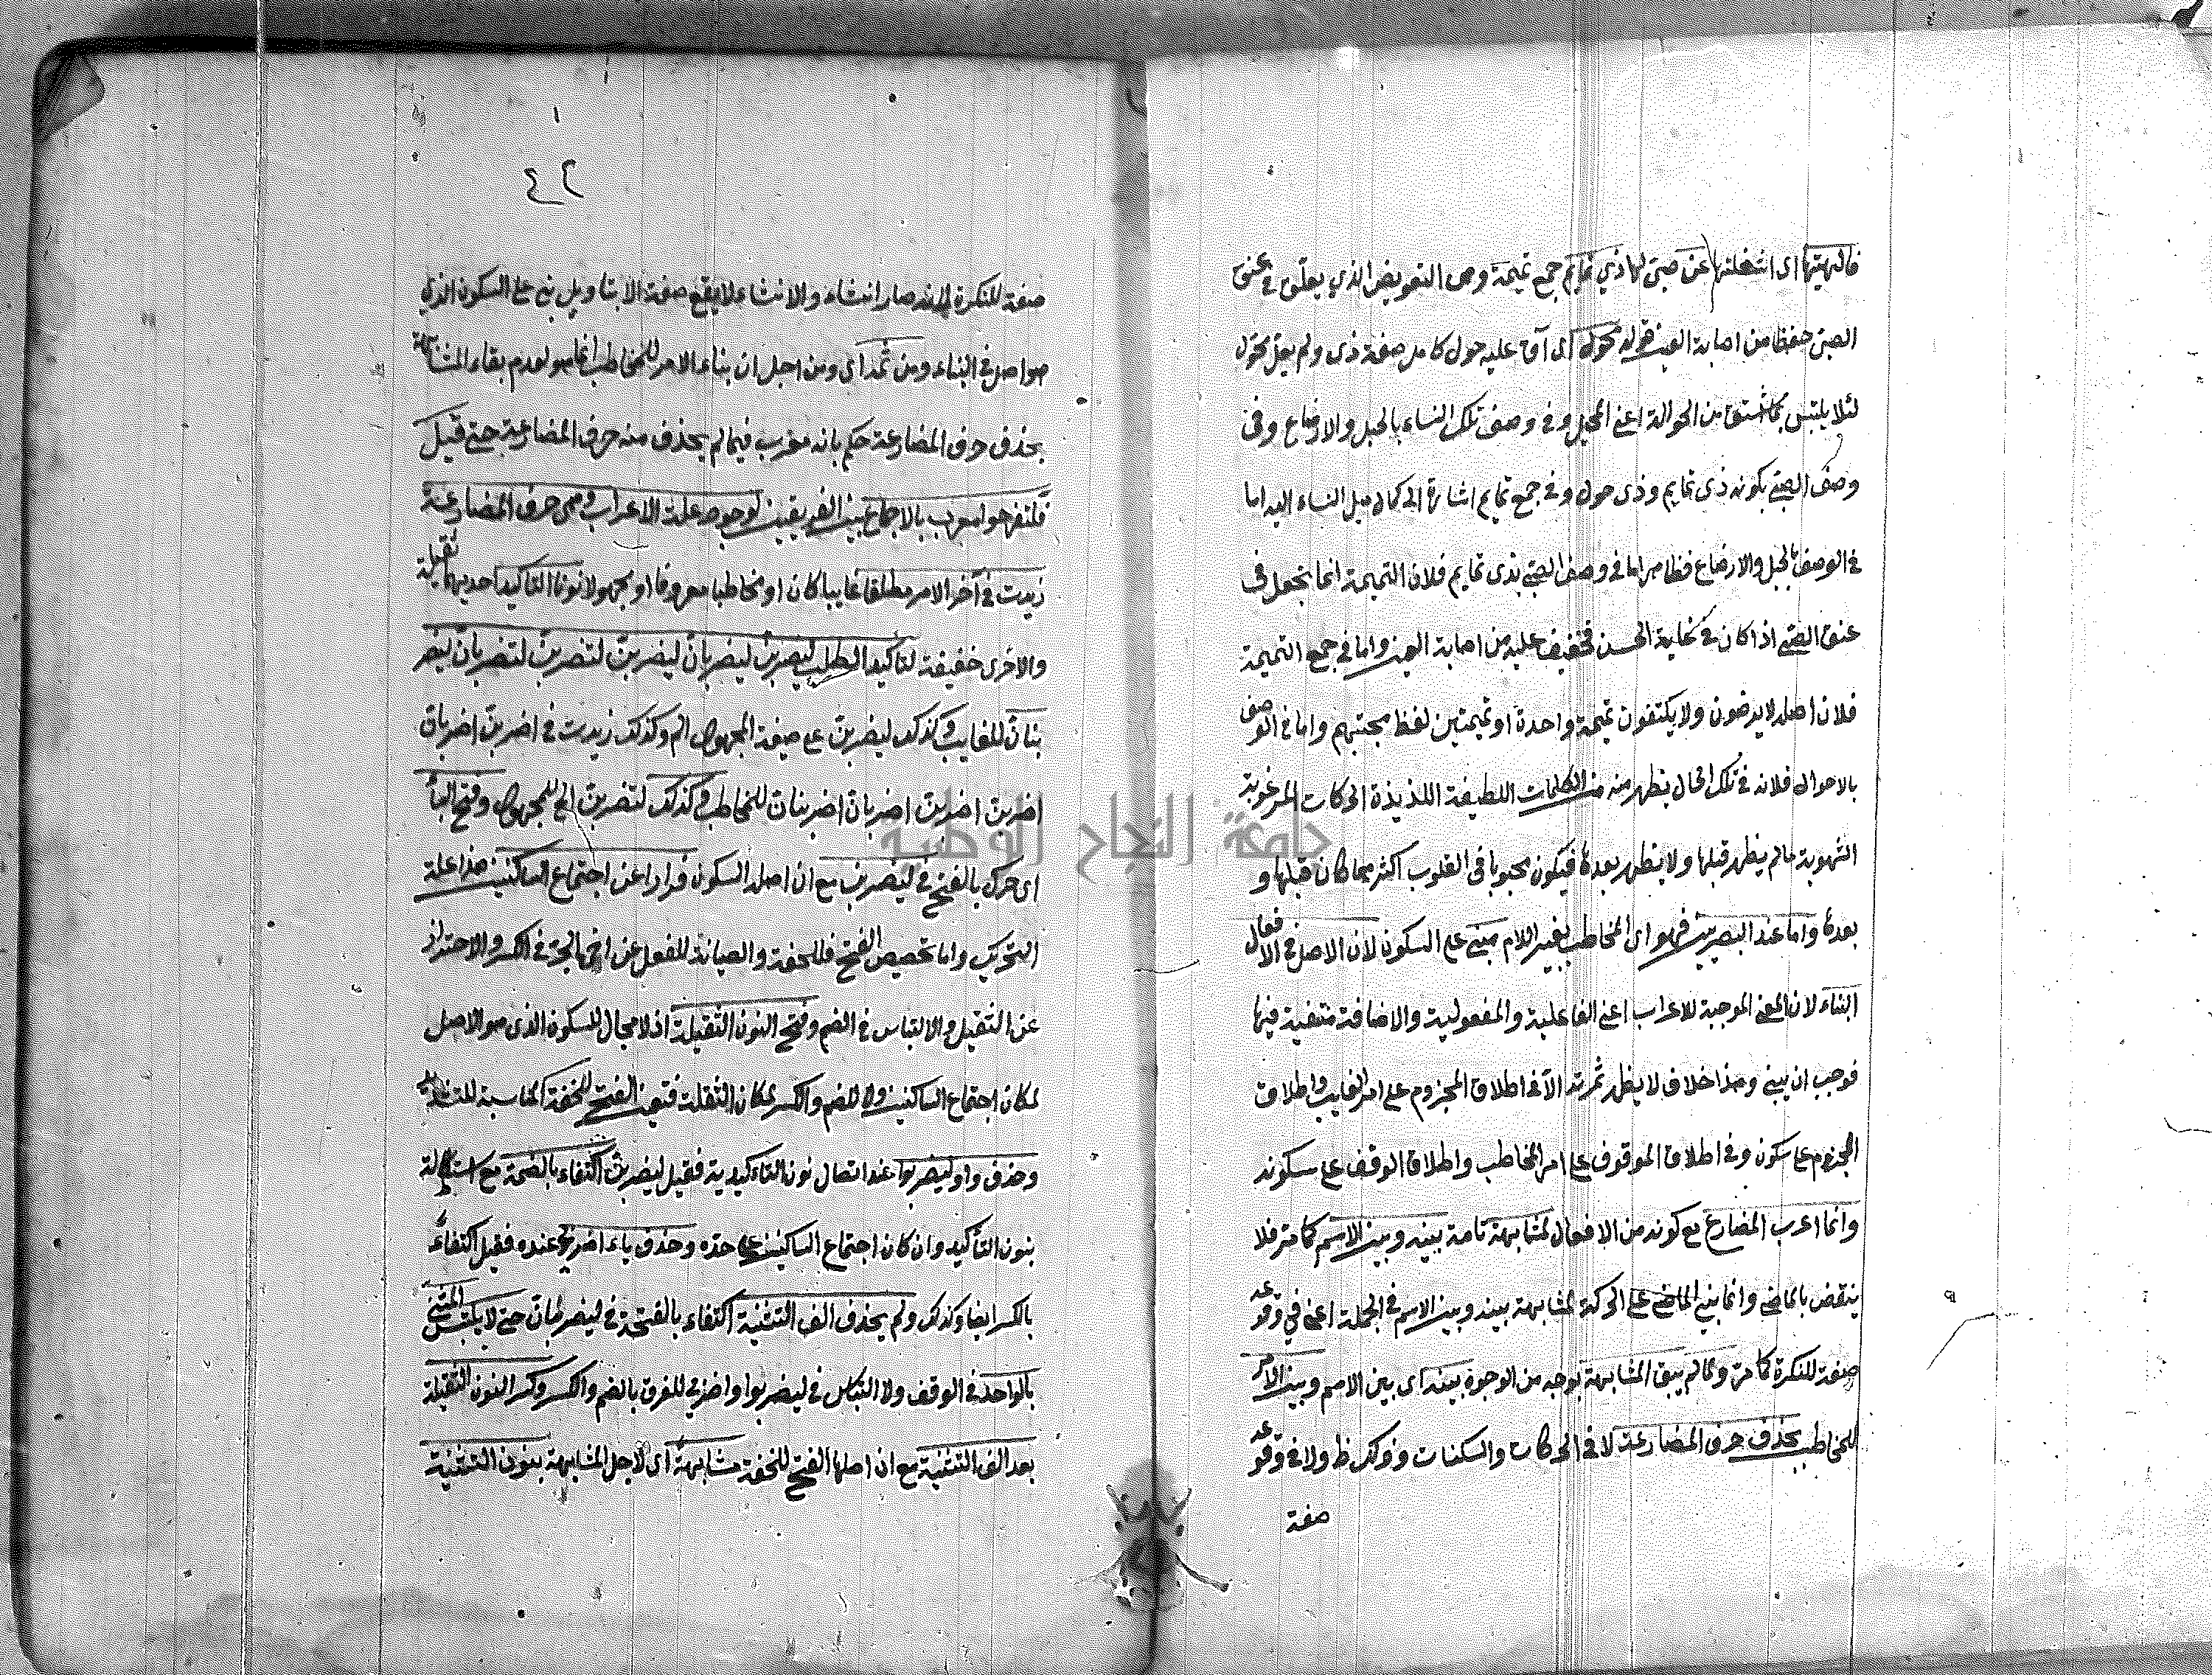 فالهيتها اى اشغلتها عن صبى لها ذي تمايم جمع تميمة وهى التعويض الذي يعلق في عنق
الصبى حفظا من اصابة العين قوله محول اى اتى عليه حول كامل صفة ذى ولم يعل محول
لئلا يلتبس بما اشتق من الحوالة اعنى المحيل وفى وصف تلك النساء بالحبل والارضاع وفى
وصف الصبى بكونه ذي تمايم وذى حول وفى جمع تمايم اشارة الى كمال ميل النساء اليه اما
فى الوصف بالحبل والارضاع فظاهر اما فى وصف الصبى بذى تمايم فلان التميمة انما يجعل فى
عنق الصبى اذا كان فى غاية الحسن فخيف عليه من اصابة العين واما فى جمع التميمة
فلان اهله لا يرضون ولا يكتفون تميمة واحدة او تميمتين لفظ محبتهم واما فى الوصف
بالاحوال فلانه فى تلك الحال يظهر منه من الكلمات اللطيفة اللذيذة الحركات المرغوبة
الشهوية ما لم يظهر قبلها ولا يظهر بعدها فيكون محبوبا فى القلوب اكثر مما كان قبلها و
بعدها واما عند البصريين فهو اى المخاطب بغير اللام مبنى على السكون لان الاصل فى الافعال
البناء لان المعنى الموجبة للاعراب اعنى الفاعلية والمفعولية والاضافة منتفية فيها
فوجب ان يبنى وهذا خلاف لا يظهر ثمرته الا فى اطلاق المجزوم على امر الغايب واطلاق
الجزم على سكون وفى اطلاق الموقوف على امر المخاطب واطلاق الوقف على سكونه
وانما اعرب المضارع مع كونه من الافعال لمشابهة تامة بينه وبين الاسم كما مر فلا
ينقض بالماضى وانما بنى الماضى على الحركة لمشابهة بينه وبين الاسم فى الجملة اعنى فى وقوعه
صفة للنكرة كما مر ولما لم يبق المشابهة بوجه من الوجوه بينه اى بين الاسم وبين الامر
للمخاطب بحذف حرف المضارعة لا فى الحركات والسكنات وذلك ظ ولا فى وقوعه
صفة
٤٢
صفة للنكرة لانه صار انشاء والانشاء لا يقع صفة الا بتاويل بنى على السكون الذي
هو اصل فى البناء ومن ثمه اى ومن اجل ان بناء الامر للمخاطب انما هو لعدم بقاء المشابهة
بحذف حرف المضارعة حكم بانه معرب فيما لم يحذف منه حرف المضارعة حتى قيل
فلتفرحوا معرب بالاجماع بين الفريقين لوجود علة الاعراب وهى حرف المضارعة
زيدت فى آخر الامر مطلقا غايبا كان او مخاطبا معروفا او مجهولا نونا التاكيد احديهما ثقيلة
والاخرى خفيفة لتاكيد الطلب ليضربن ليضربان ليضربن لتضربن لتضربان ليضر
بنان للغايب وكذلك ليضربن على صيغة المجهول الم وكذلك زيدت فى اضربن اضربان
اضربن اضربن اضربان اضربنان للمخاطب وكذلك لتضربن الخ للمجهول وفتح الباء
اى حرك بالفتح فى ليضربن مع ان اصله السكون فرارا عن اجتماع الساكنين هذا علة
التحريك واما تخصيص الفتح فللخفة والصيانة للفعل عن اخى الجر فى الكسر والاحتراز
عن الثقيل والالتباس فى الضم وفتح النون الثقيلة اذ لا مجال للسكون الذى هو الاصل
لمكان اجتماع الساكنين ولا للضم والكسر لمكان الثقلت فتعين الفتح للخفة المناسبة للتشديد
وحذف واو ليضربوا عند اتصال نون التاكيدية فقيل ليضربن اكتفاء بالضمة مع استطالة
بنون التأكيد وان كان اجتماع الساكنين على حده وحذف ياء اضربى عنده فقيل اكتفاء
بالكسر ايضا وكذلك ولم يحذف الف التثنية اكتفاء بالفتحة فى ليضربان حتى لا يلتبس المثنى
بالواحد فى الوقف ولا التباس فى ليضربوا واضربي للفرق بالضم والكسر وكسر النون الثقيلة
بعد الف التثنية مع ان اصلها الفتح للخفة مشابهة اى لاجل المشابهة بنون التثنية
جامعة النجاح الوطنية